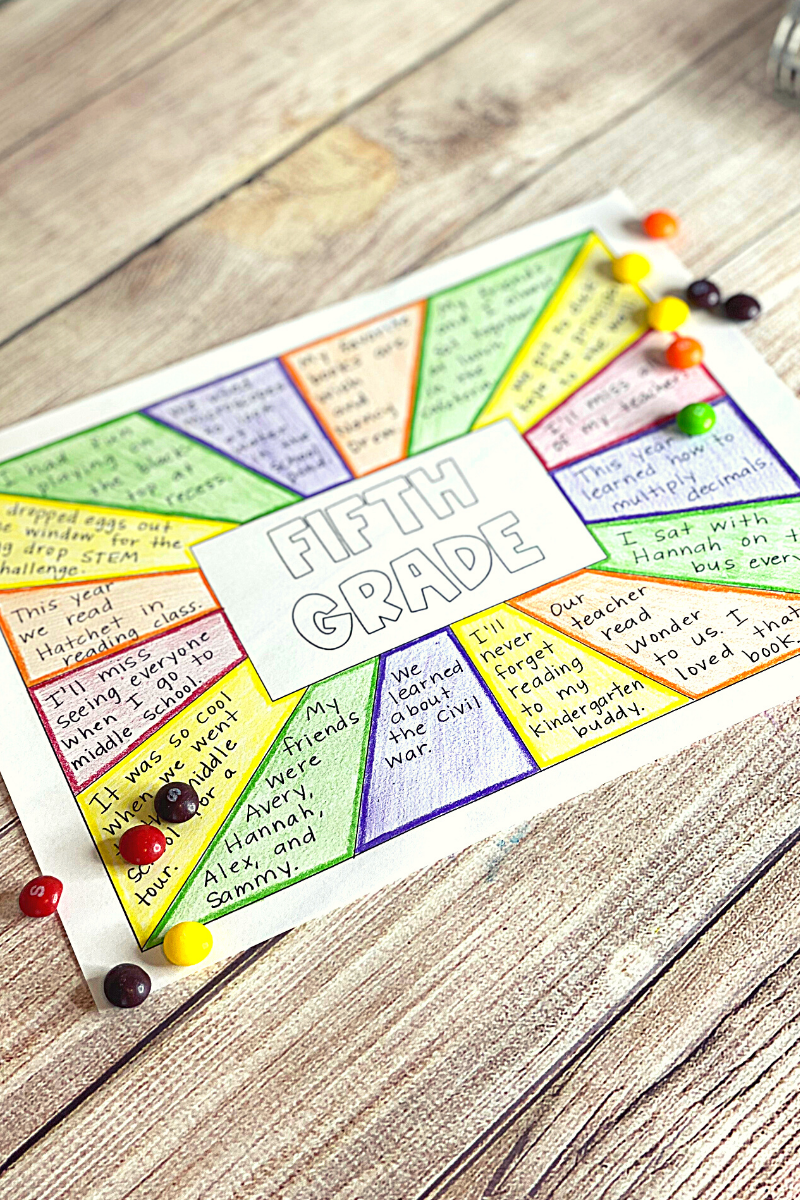 FIFTH
GRADE
I had fun
playing in
the black-
top at
recess.
My favorite
books are
Wish
and
Nancy
Drew.
My friends
and I always
sat together
at lunch
in the
cafeteria.
I'll miss a
of my teacher
This year
learned how to
multiply decimals.
I sat with
Hannah on t
bus every
Our
teacher
read
Wonder
to us. I
loved that
book.
I'll
never
forget
reading
to my
kindergarten
buddy.
We
learned
about
the Civil
War.
My
friends
were
Avery,
Hannah,
Alex, and
Sammy.
It was so cool
when we went
middle
for a
tour.
I'll miss
seeing everyone
when I go to
middle school.
This year
we read
Hatchet in
reading class.
dropped eggs out
window for the
drop STEM
challenge.
S
S